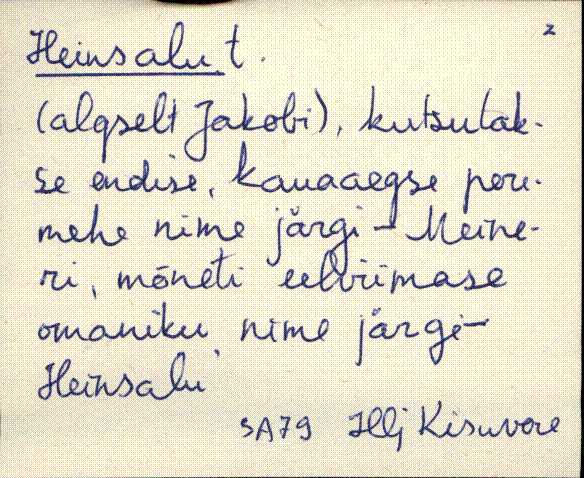 2
Heinsalu t.
(algselt Jakobi), kutsutak-
se endise, kauaaegse pere-
mehe nime järgi - Meine-
ri, mõneti eelviimase
omaniku nime järgi -
Heinsalu
SA79 Illj Kisuvere